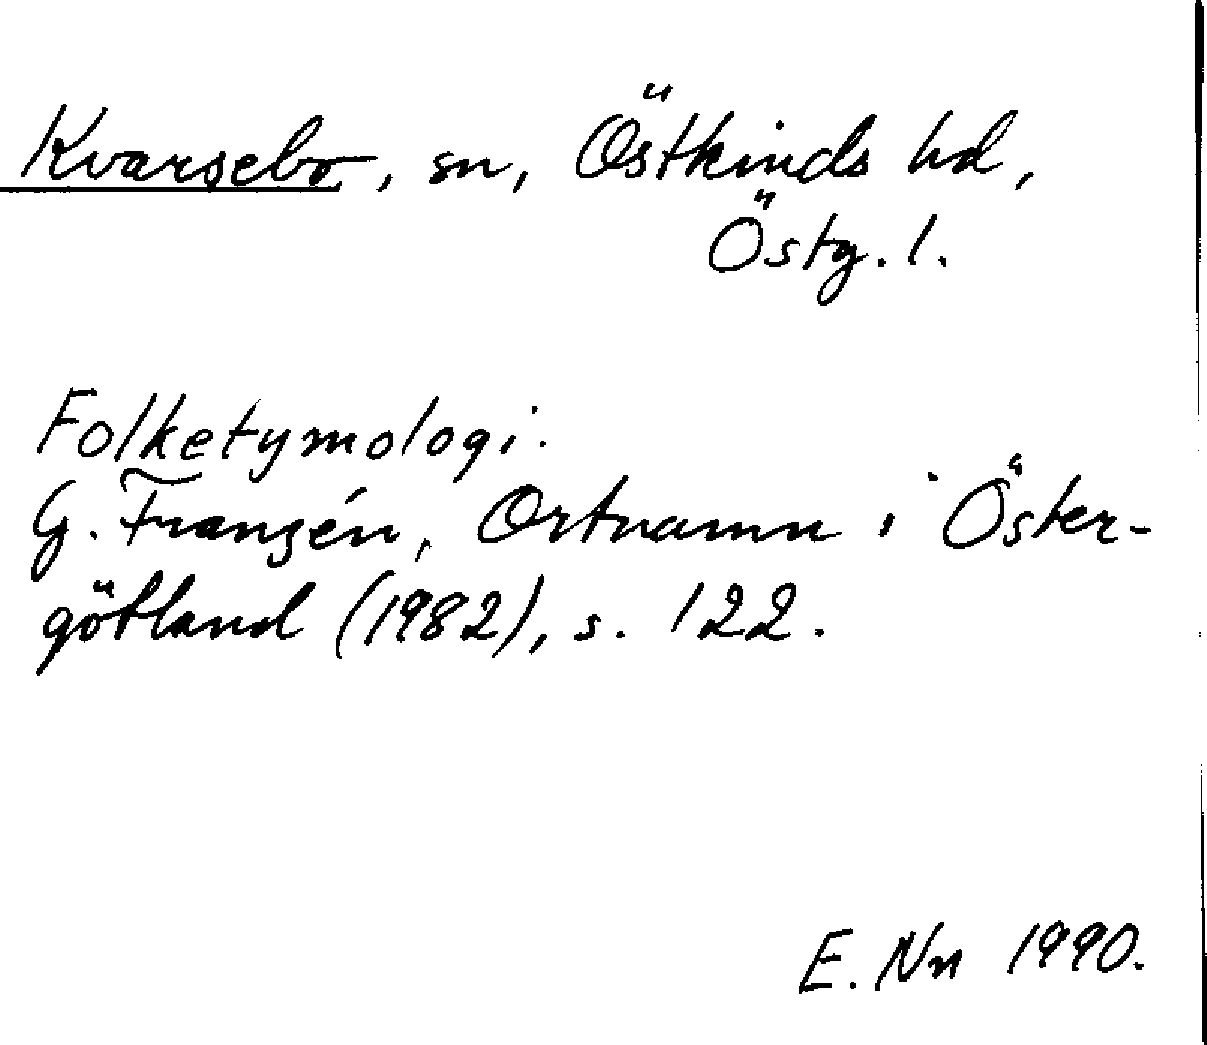 Kvarsebo, sn, Östkinds hd,
Östg. l.
Folketymologi.
G. Franzén, Ortnamn i Öster-
götland (1982), s. 122.
E. Nn 1990.